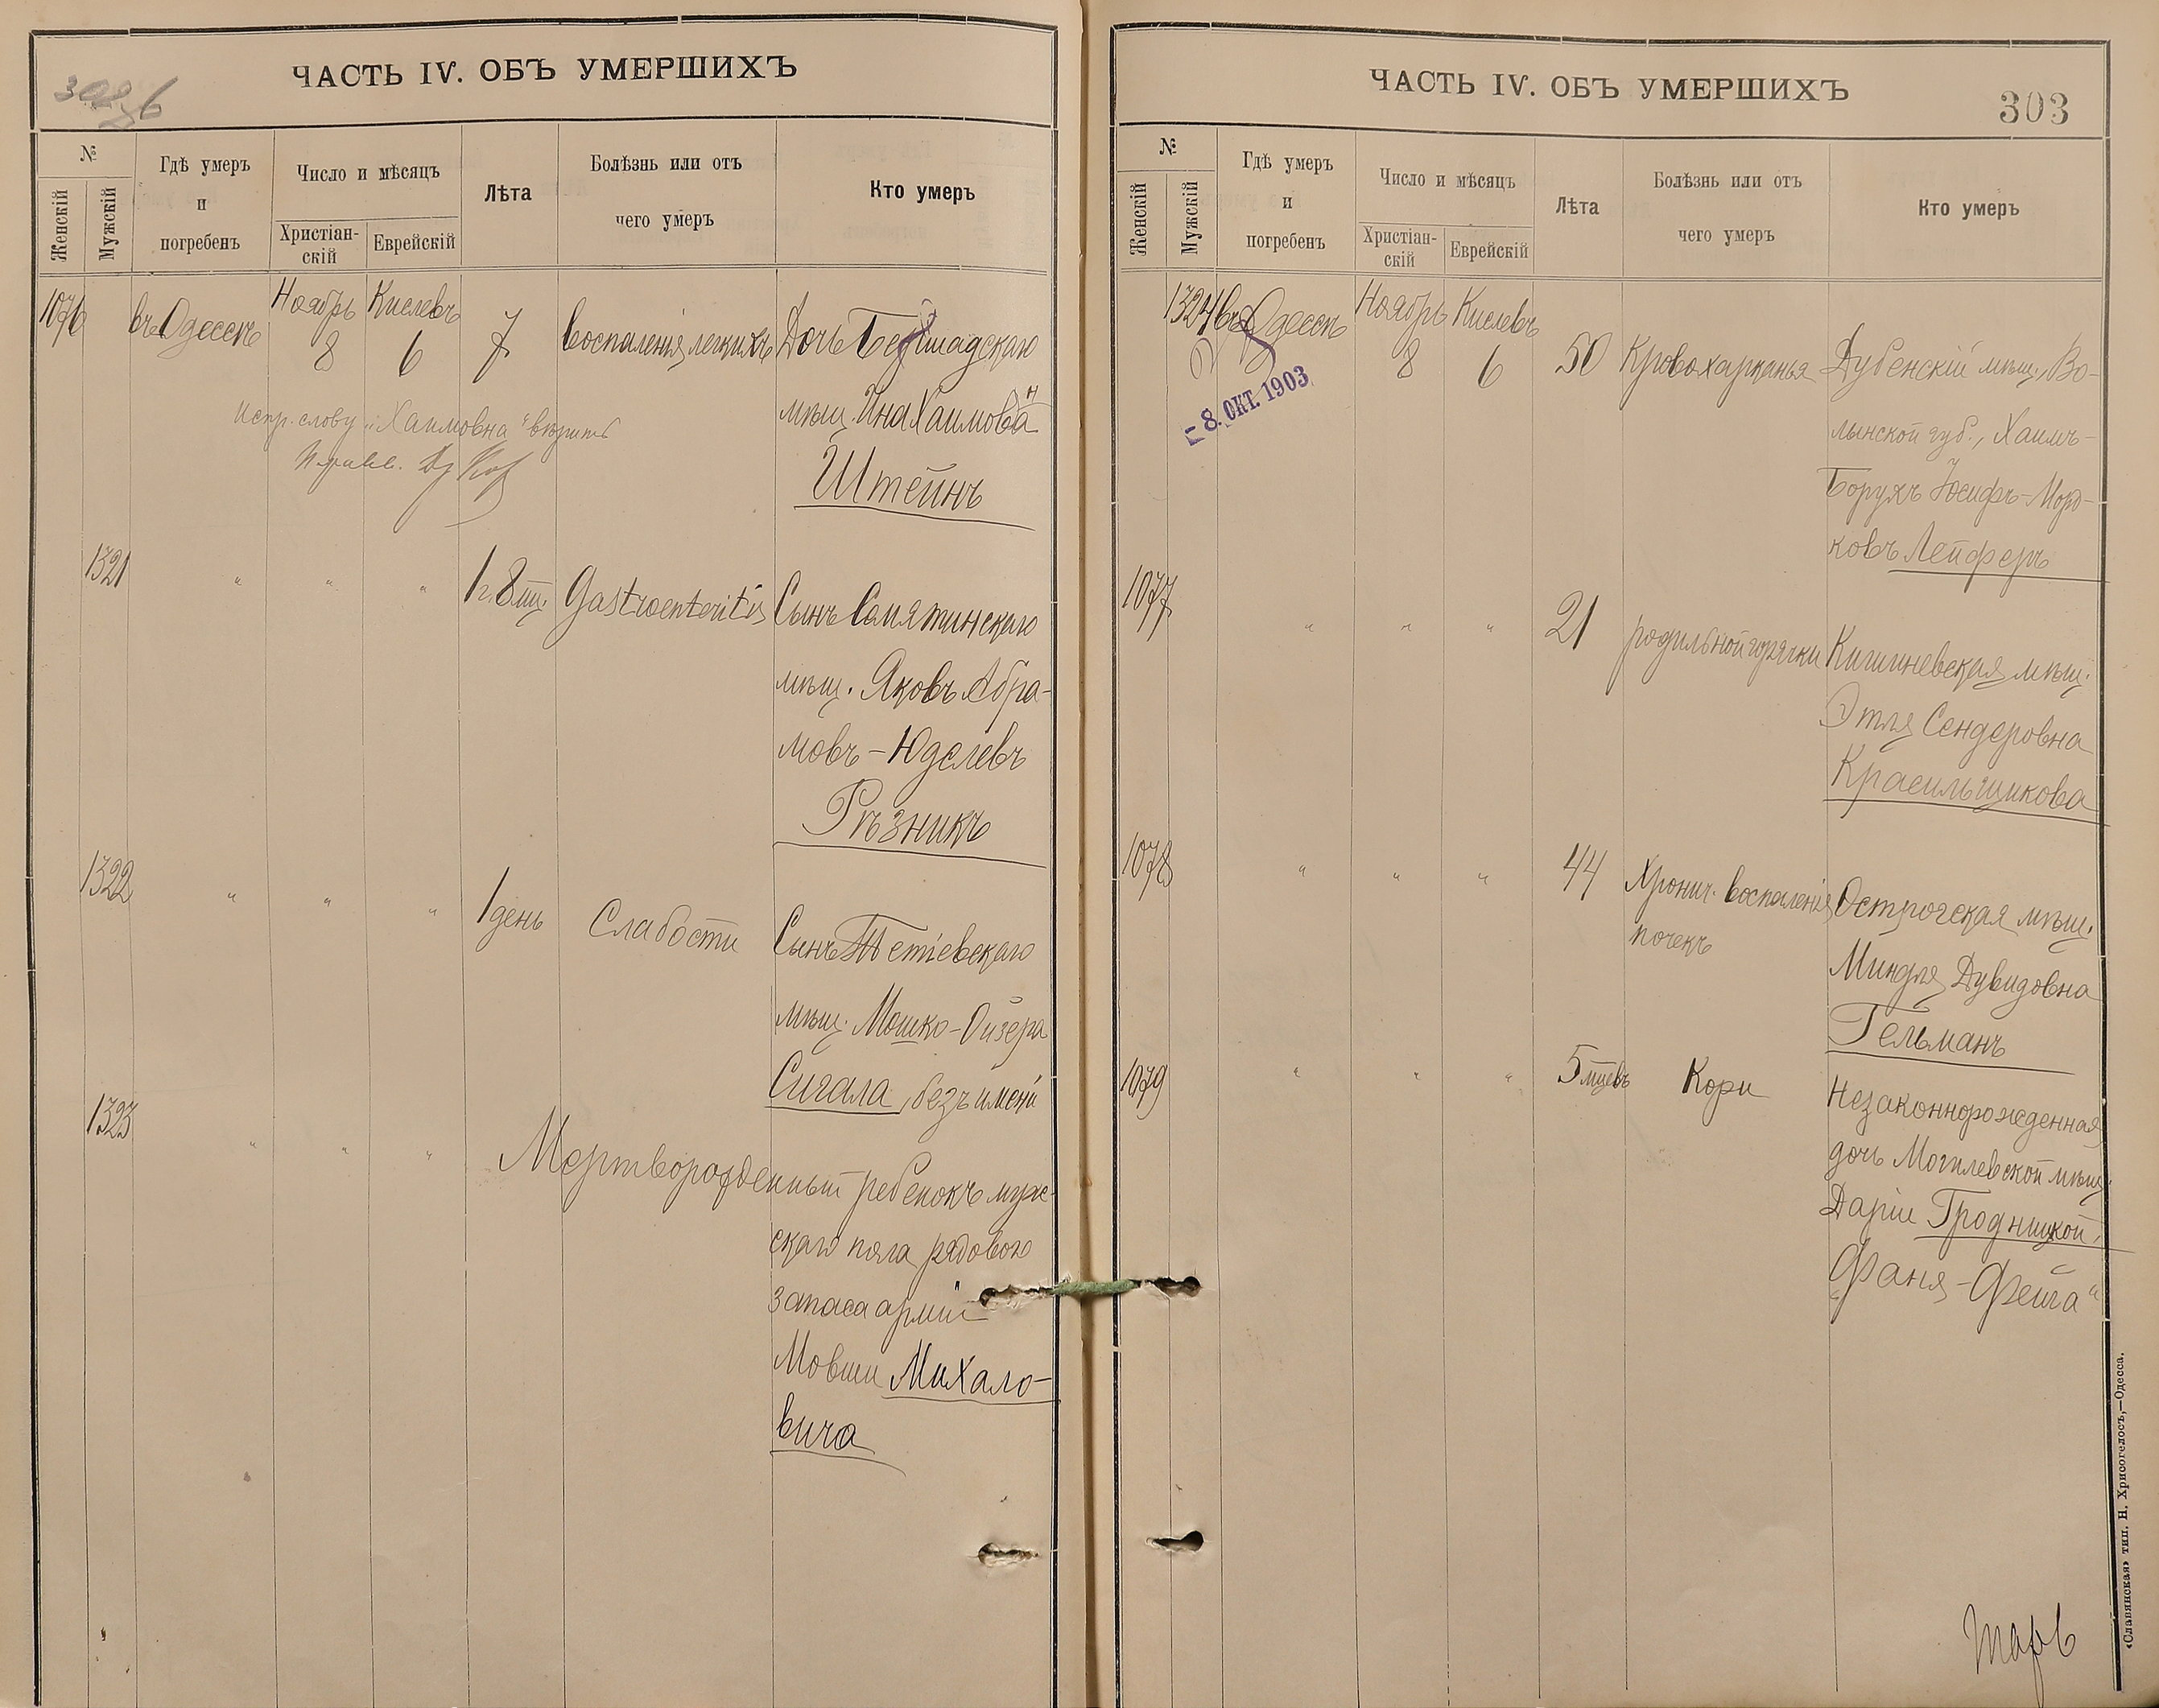 ЧАСТЬ IV. ОБЪ УМЕРШИХЪ
№
Женскій
Мужскій
Гдѣ умеръ
и
погребенъ
Число и мѣсяцъ
Христіан-
скій
Еврейскій
Лѣта
Болѣзнь или отъ
чего умеръ
Кто умеръ
1076 въ Одессѣ Ноябрь 8 Кислевъ 6 7 воспаленія легкихъ Дочь Бершадскаго
мѣщ. Ина Хаимовна
Штейнъ
испр. слову „Хаимовна“ вѣрить
1321 " " " 1 г. 8 мц. Gastroenteritis Сынъ Смятинскаго
мѣщ. Яковъ Абра-
мовъ-Юделевъ
Рѣзникъ
1322 " " " 1 день Слабости Сынъ Тетіевскаго
мѣщ. Мошко-Ойзера
Сигала, безъ имени
1323 " " " Мертворожденный ребенокъ муж-
скаго пола рядового
запаса арміи
Мовши Михало-
вича
ЧАСТЬ IV. ОБЪ УМЕРШИХЪ
303
№
Женскій
Мужскій
Гдѣ умеръ
и
погребенъ
Число и мѣсяцъ
Христіан-
скій
Еврейскій
Лѣта
Болѣзнь или отъ
чего умеръ
Кто умеръ
1324 въ Одессѣ Ноябрь 8 Кислевъ 6 50 Кровохарканья Дубенскій мѣщ., Во-
лынской губ., Хаимъ-
Борухъ Іосифъ-Морд-
ковъ Лейферъ
- 8. ОКТ. 1903
1077 " " " 21 родильной горячки Кишиневская мѣщ.
Этля Сендеровна
Красильщикова
1078 " " " 44 Хронич. воспаленія Острогская мѣщ.
почекъ Миндля Дувидовна
Гельманъ
1079 " " " 5 мцевъ Кори Незаконнорожденная
дочь Могилевской мѣщ.
Даріи Гродницкой,
„Фаня-Фейга“
«Славянская» тип. Н. Хрисогелосъ,—Одесса.